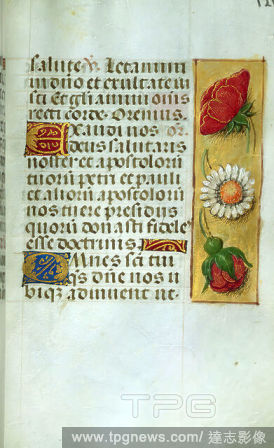 salute. Letamini
in dño et exultate iu
sti Et gliamini om̃s
recti corde. Oremus.
Exaudi nos
deus salutaris
noster et apostolorũ
tuorũ petri et pauli
et aliorũ apostolorũ
nos tuere presidiis
quorũ donasti fidele
esse doctrinis
Omnes sc̃i tui
qs dñe nos u
biq; adiuuent ut
TPG
www.tpgnews.com/ 達志影像